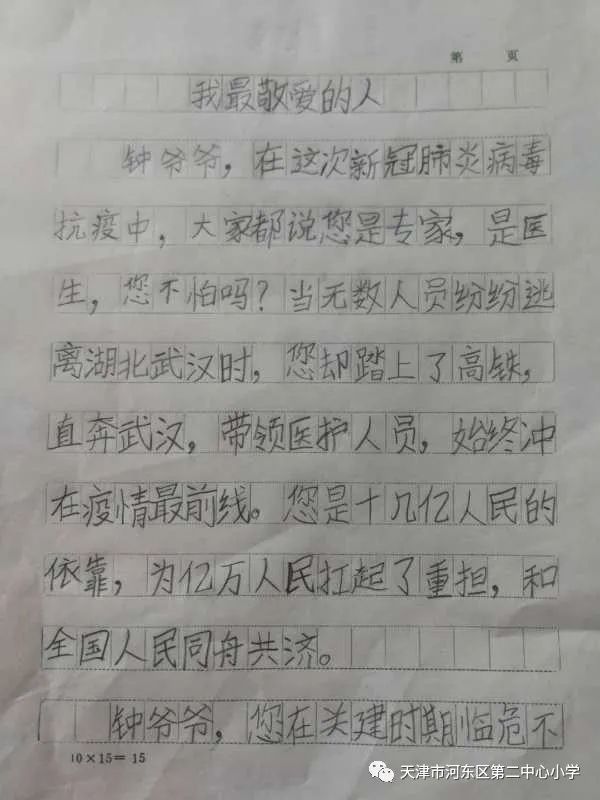 第 页
我最敬爱的人
钟爷爷，在这次新冠肺炎病毒
抗疫中，大家都说您是专家，是医
生，您不怕吗？当无数人员纷纷逃
离湖北武汉时，您却踏上了高铁，
直奔武汉，带领医护人员，始终冲
在疫情最前线。您是十几亿人民的
依靠，为亿万人民扛起了重担，和
全国人民同舟共济。
钟爷爷，您在关建时期临危不
10×15=15
天津市河东区第二中心小学